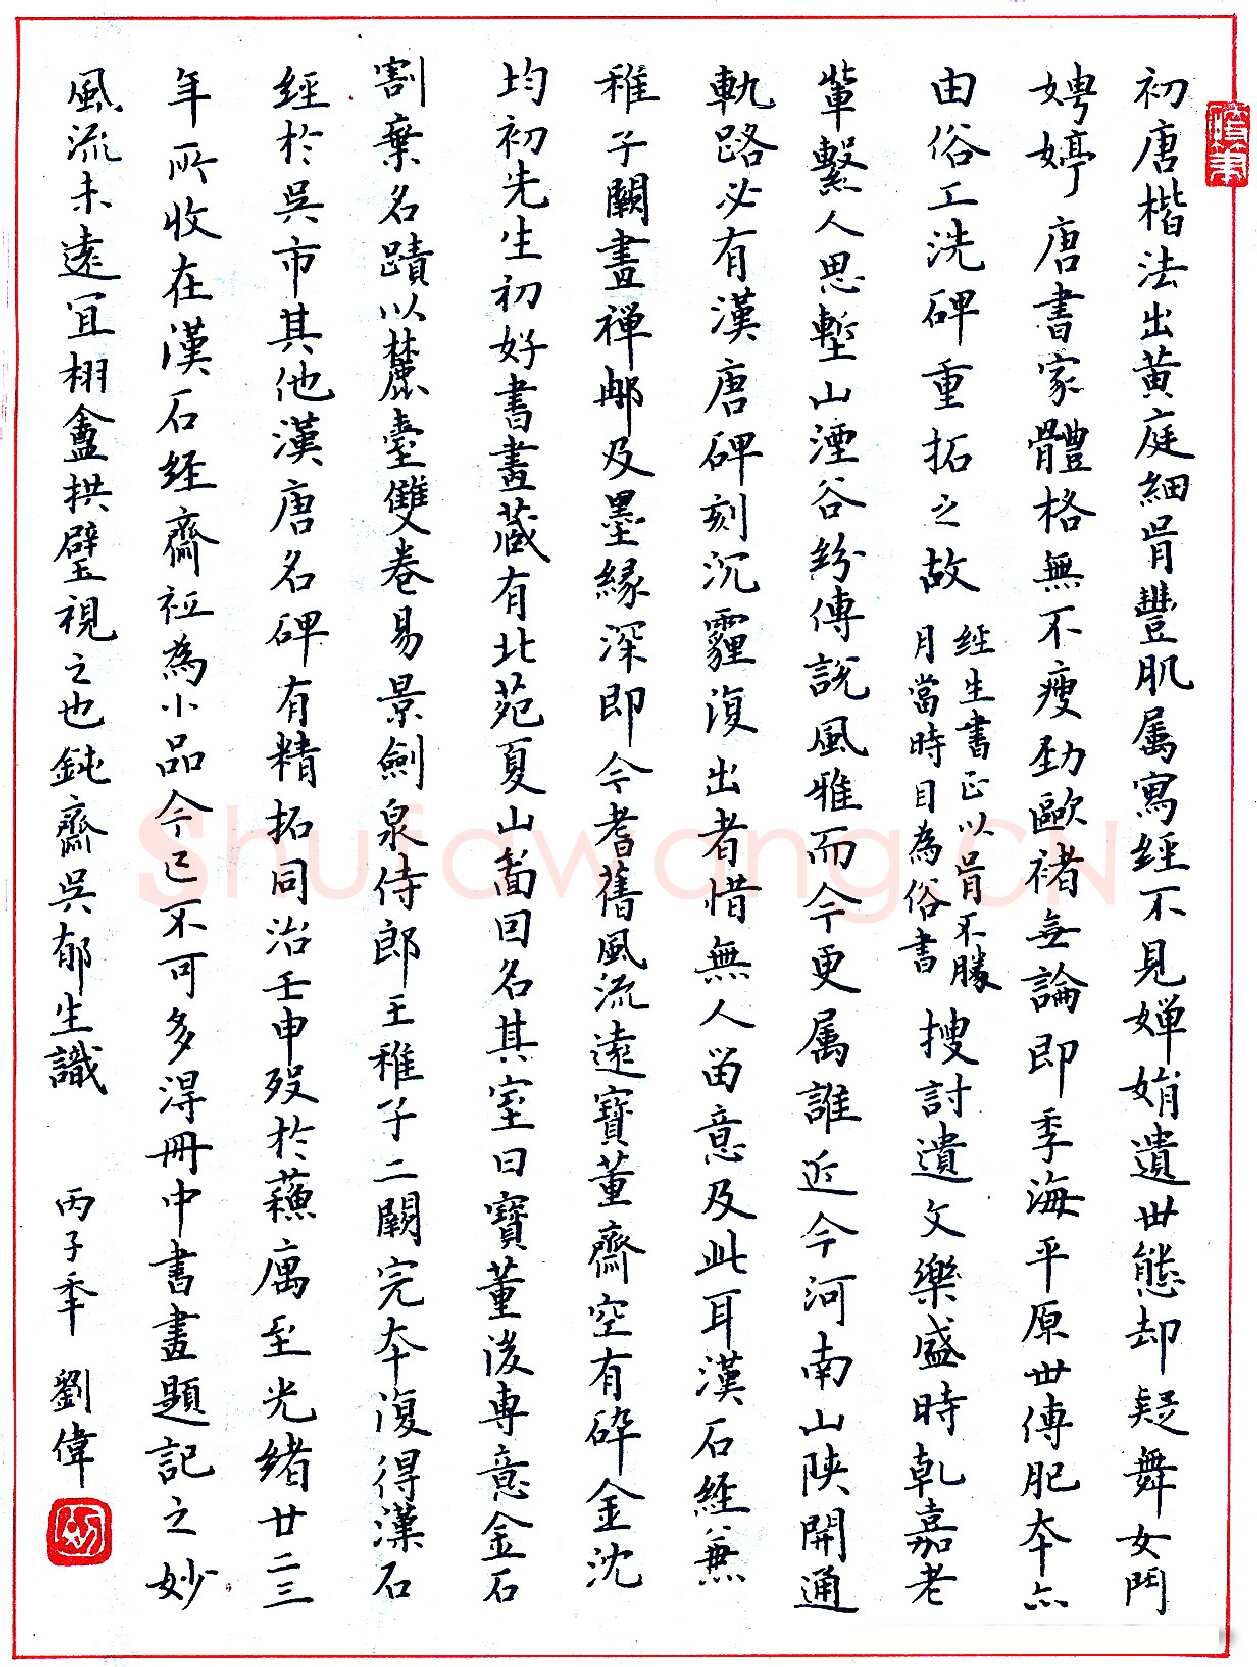 初唐楷法出黃庭細骨豐肌属寫經不見嬋娟遺世態却疑舞女鬥
娉婷唐書家體格無不瘦勁歐褚無論即季海平原世傳肥本亦
由俗工洗碑重拓之故
經生書正以骨不勝
月當時目為俗書
搜討遺文樂盛時乾嘉老
輩繫人思塹山湮谷紛傳說風雅而今更属誰近今河南山陝開通
軌路必有漢唐碑刻沉霾復出者惜無人留意及此耳漢石經兼
稚子闕畫禪邮及墨緣深即今耆舊風流遠寶董齋空有碎金沈
均初先生初好書畫藏有北苑夏山啚回名其室曰寶董後専意金石
割棄名蹟以麓臺雙卷易景劍泉侍郎王稚子二闕完本復得漢石
經於吳市其他漢唐名碑有精拓同治壬申歿於蘓寓至光緒廿二三
年所收在漢石經齋衹為小品今已不可多得冊中書畫題記之妙
風流未遠宜栩盦拱璧視之也鈍齋吳郁生識 丙子年 劉偉
Shufawang.CN